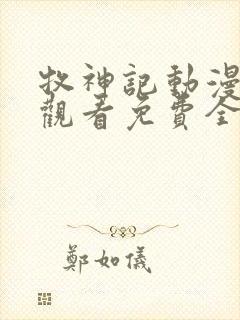 牧神記動漫
觀看免費全
鄭如儀